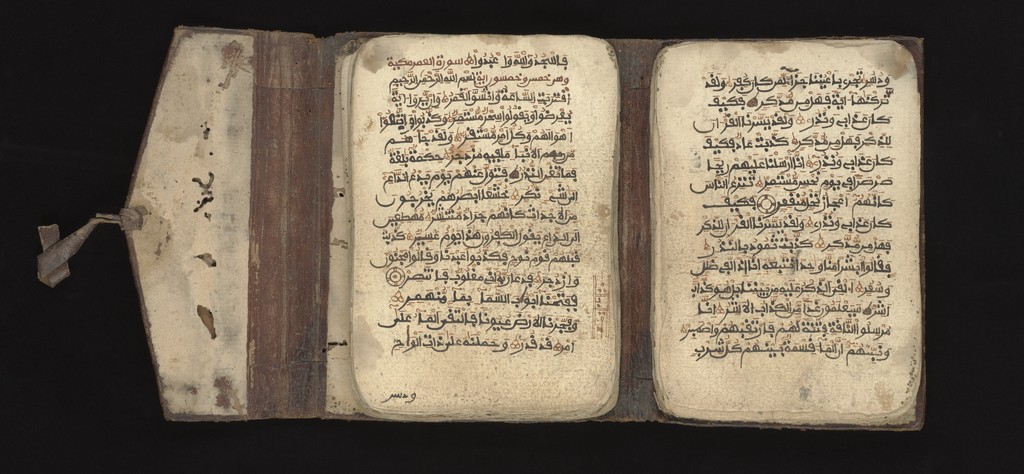 فاسجدوا لله واعبدوا سورة القمر مكية
وهي خمس وخمسون اية بسم الله الرحمن الرحيم
اقتربت الساعة وانشق القمر وان يروا اية
يعرضوا ويقولوا سحر مستمر وكذبوا واتبعوا
اهواءهم وكل امر مستقر ولقد جاءهم
من الانباء ما فيه مزدجر حكمة بلغة
فما تغن النذر فتول عنهم يوم يدع الداع
الى شيء نكر خشعا ابصرهم يخرجون
من الاجداث كانهم جراد منتشر مهطعين
الى الداع يقول الكفرون هذا يوم عسر كذبت
قبلهم قوم نوح فكذبوا عبدنا وقالوا مجنون
وازدجر فدعا ربه اني مغلوب فانتصر
ففتحنا ابوب السماء بماء منهمر
وفجرنا الارض عيونا فالتقى الماء على
امر قد قدر وحملنه على ذات الواح
ودسر
ودسر تجري باعيننا جزاء لمن كان كفر ولقد
تركنها اية فهل من مدكر فكيف
كان عذابي ونذر ولقد يسرنا القران
للذكر فهل من مدكر كذبت عاد فكيف
كان عذابي ونذر انا ارسلنا عليهم ريحا
صرصرا في يوم نحس مستمر تنزع الناس
كانهم اعجاز نخل منقعر فكيف
كان عذابي ونذر ولقد يسرنا القران للذكر
فهل من مدكر كذبت ثمود بالنذر
فقالوا ابشرا منا وحدا نتبعه انا اذا لفي ضلل
وسعر القي الذكر عليه من بيننا بل هو كذاب
اشر سيعلمون غدا من الكذاب الاشر انا
مرسلوا الناقة فتنة لهم فارتقبهم واصطبر
ونبئهم ان الماء قسمة بينهم كل شرب